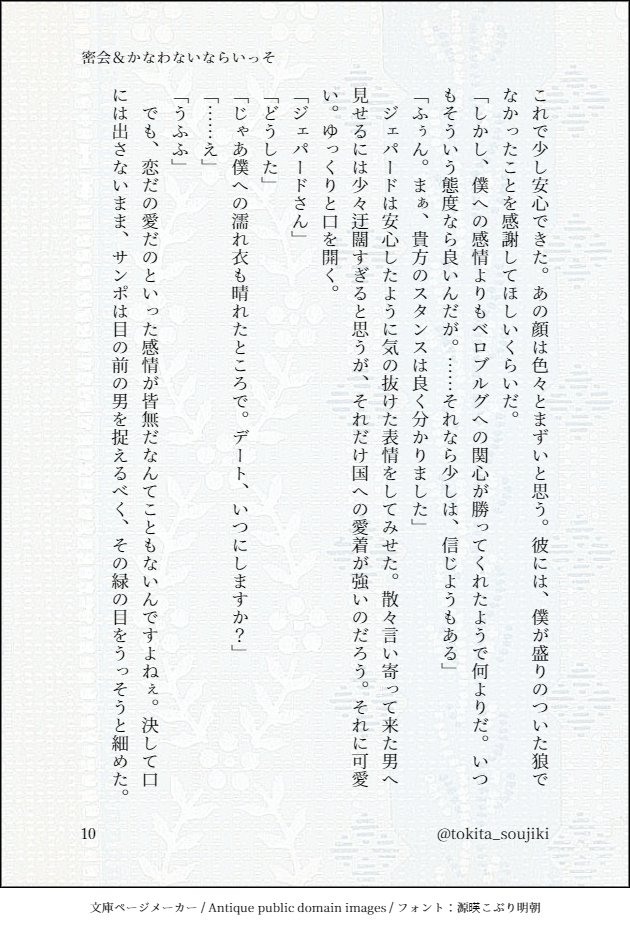 密会＆かなわないならいっそ
これで少し安心できた。あの顔は色々とまずいと思う。彼には、僕が盛りのついた狼で
なかったことを感謝してほしいくらいだ。
「しかし、僕への感情よりもベロブルグへの関心が勝ってくれたようで何よりだ。いつ
もそういう態度なら良いんだが。……それなら少しは、信じようもある」
「ふぅん。まぁ、貴方のスタンスは良く分かりました」
ジェパードは安心したように気の抜けた表情をしてみせた。散々言い寄って来た男へ
見せるには少々迂闊すぎると思うが、それだけ国への愛着が強いのだろう。それに可愛
い。ゆっくりと口を開く。
「ジェパードさん」
「どうした」
「じゃあ僕への濡れ衣も晴れたところで。デート、いつにしますか？」
「……え」
「うふふ」
でも、恋だの愛だのといった感情が皆無だなんてこともないんですよねぇ。決して口
には出さないまま、サンポは目の前の男を捉えるべく、その緑の目をうっそうと細めた。
10
@tokita_soujiki
文庫ページメーカー / Antique public domain images / フォント：源暎こぶり明朝